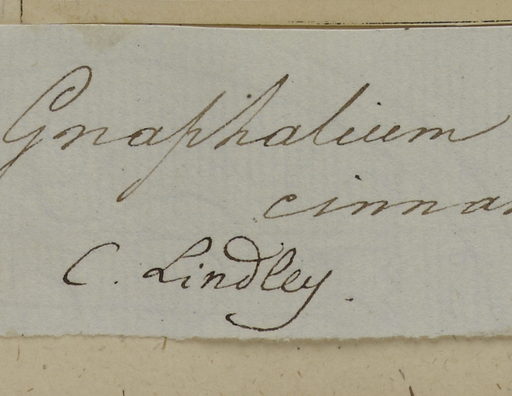 Gnaphalium
cinna
C. Lindley.